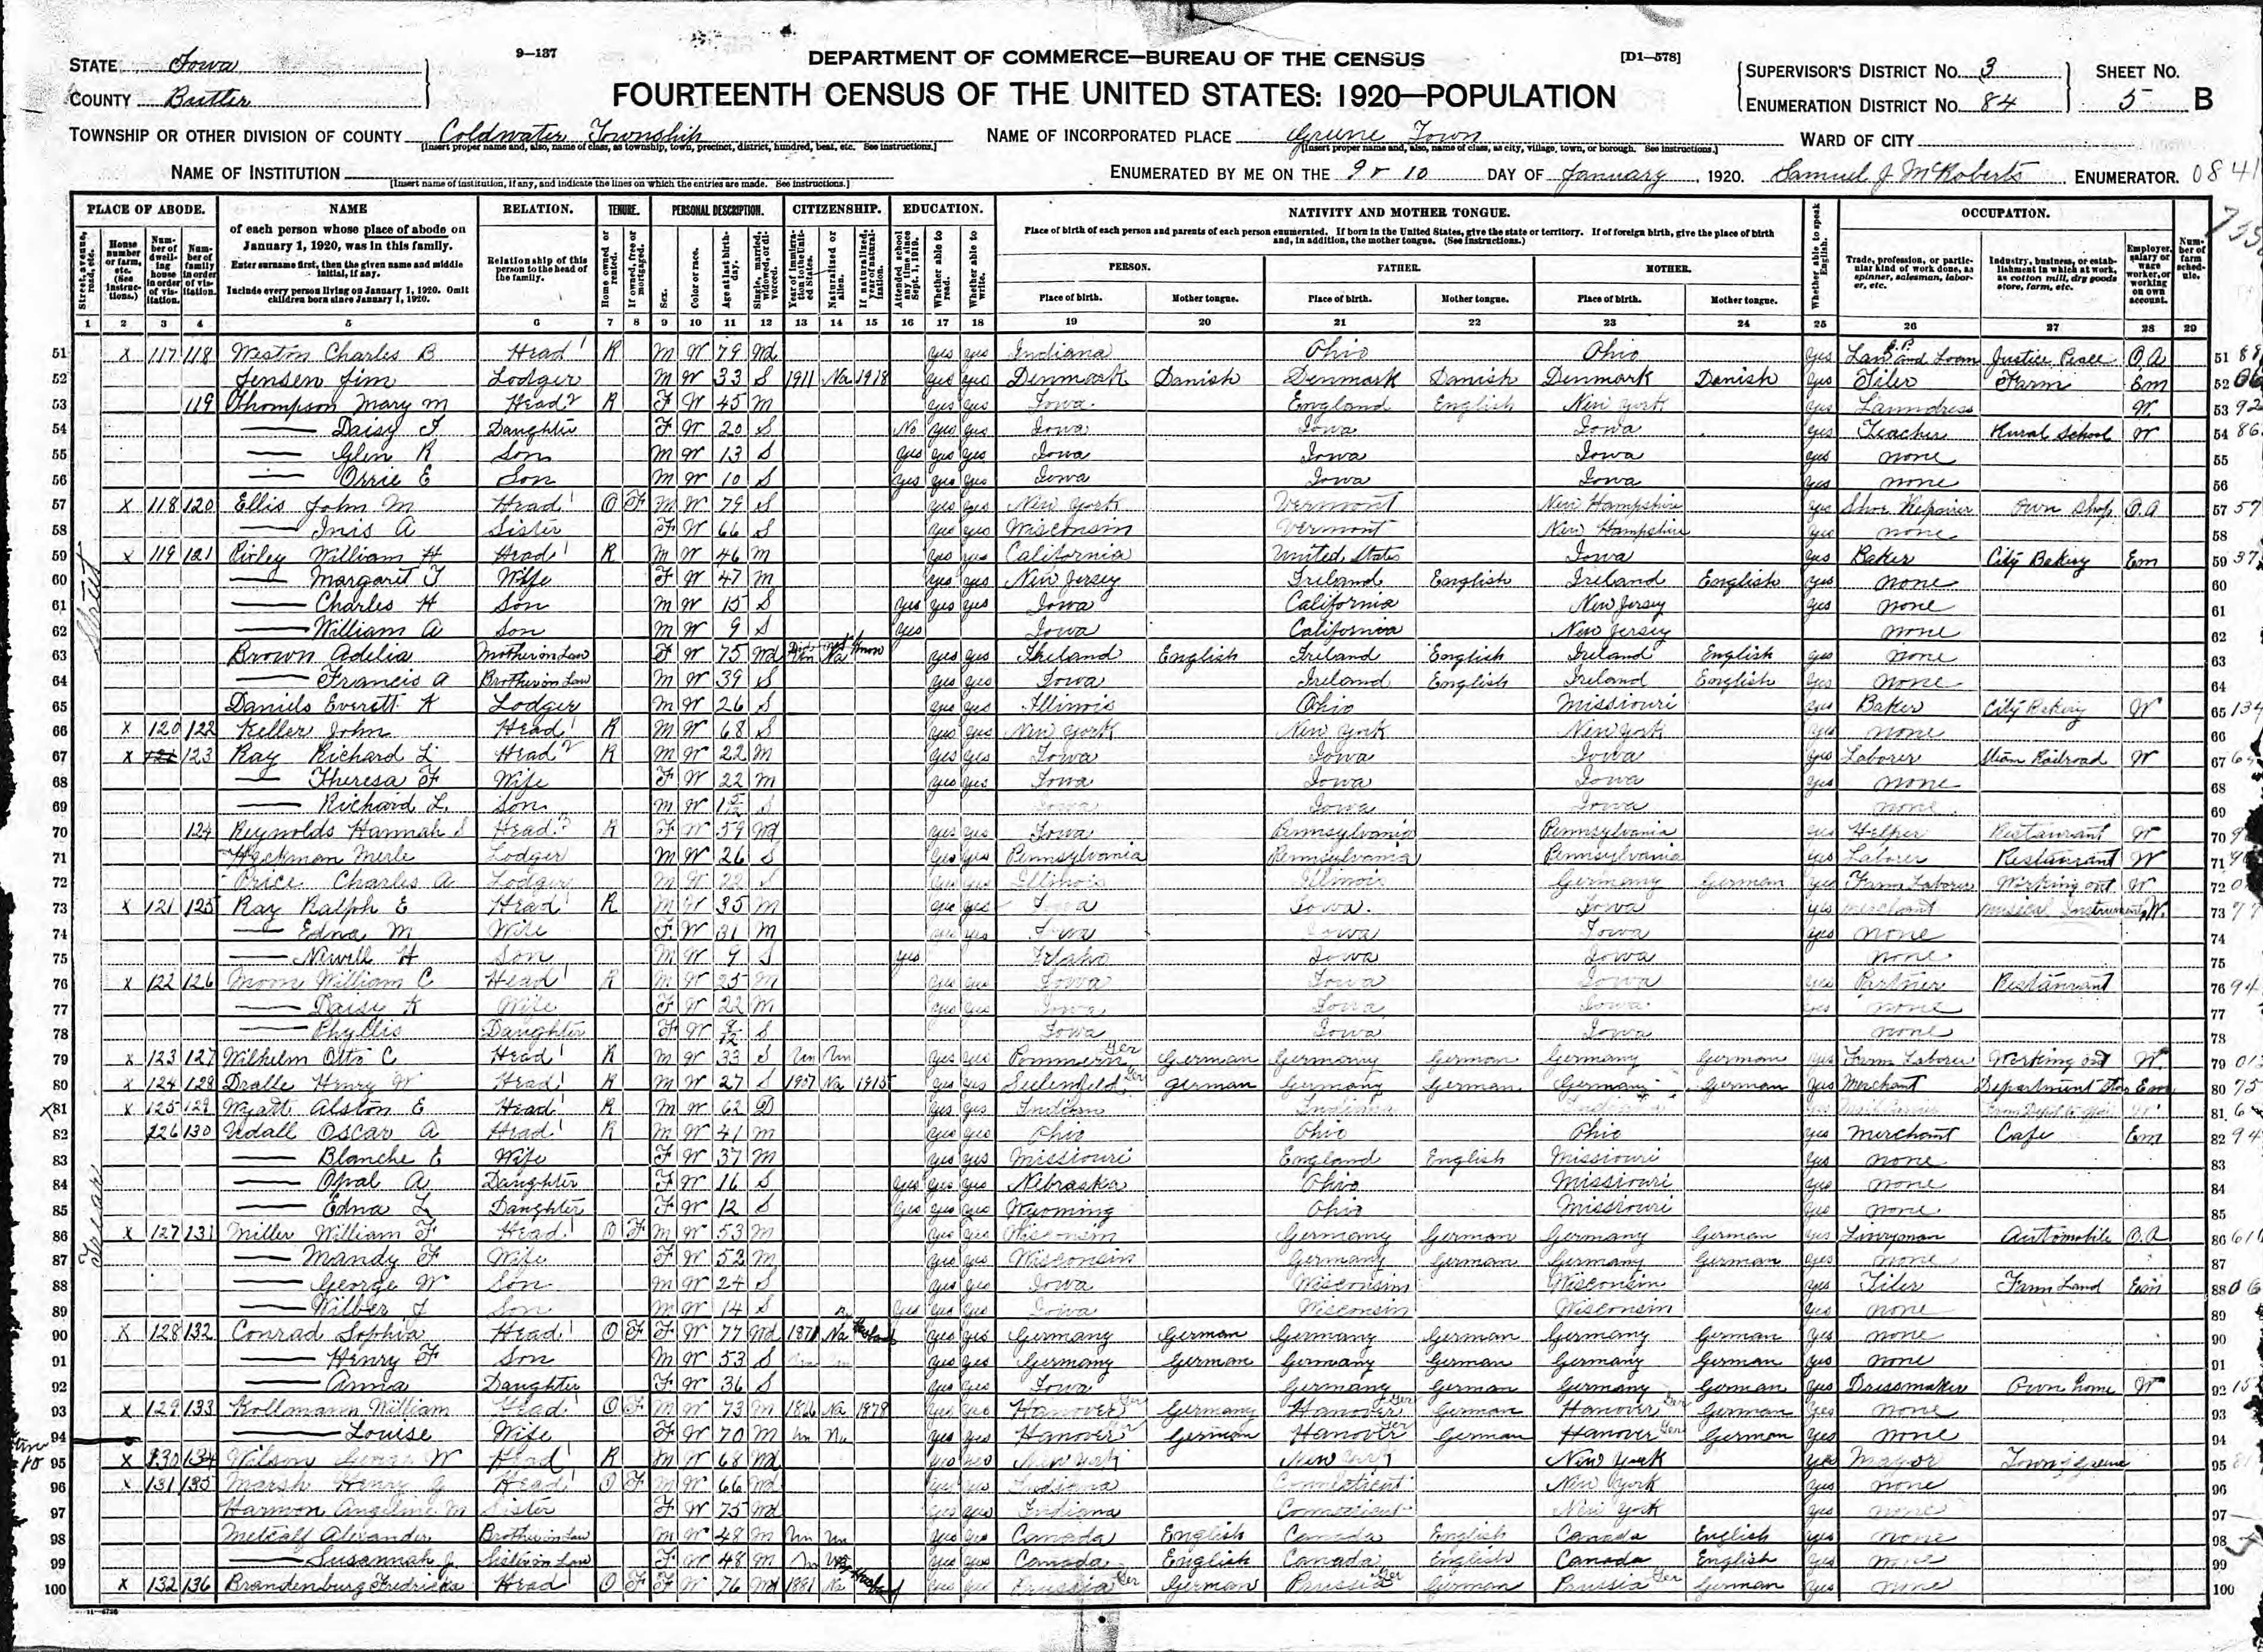 9-137 DEPARTMENT OF COMMERCE—BUREAU OF THE CENSUS [D1—578]
STATE Iowa
COUNTY Butler
FOURTEENTH CENSUS OF THE UNITED STATES: 1920—POPULATION
SUPERVISOR'S DISTRICT No. 3 SHEET No.
ENUMERATION DISTRICT No. 84 5 B
TOWNSHIP OR OTHER DIVISION OF COUNTY Coldwater Township NAME OF INCORPORATED PLACE Greene Town WARD OF CITY
[Insert proper name and, also, name of class, as township, town, precinct, district, hundred, beat, etc. See instructions.] [Insert proper name and, also, name of class, as city, village, town, or borough. See instructions.]
NAME OF INSTITUTION ENUMERATED BY ME ON THE 9 & 10 DAY OF January, 1920. Samuel J McRoberts ENUMERATOR. 0841
[Insert name of institution, if any, and indicate the lines on which the entries are made. See instructions.]
PLACE OF ABODE. NAME RELATION. TENURE. PERSONAL DESCRIPTION. CITIZENSHIP. EDUCATION. NATIVITY AND MOTHER TONGUE. OCCUPATION.
of each person whose place of abode on January 1, 1920, was in this family.
Enter surname first, then the given name and middle initial, if any.
Include every person living on January 1, 1920. Omit children born since January 1, 1920.
Relationship of this person to the head of the family.
Place of birth of each person and parents of each person enumerated. If born in the United States, give the state or territory. If of foreign birth, give the place of birth and, in addition, the mother tongue. (See instructions.)
PERSON. FATHER. MOTHER.
Place of birth. Mother tongue. Place of birth. Mother tongue. Place of birth. Mother tongue.
1 2 3 4 5 6 7 8 9 10 11 12 13 14 15 16 17 18 19 20 21 22 23 24 25 26 27 28 29
51 X 117 118 Weston Charles B Head R M W 79 Wd yes yes Indiana Ohio Ohio yes Law and Loan Justice Peace O.A 51
52 Jensen Jim Lodger M W 33 S 1911 Na 1918 yes yes Denmark Danish Denmark Danish Denmark Danish yes Tiler Farm Em 52
53 119 Thompson Mary M Head R F W 45 M yes yes Iowa England English New York yes Laundress W 53
54 Daisy F Daughter F W 20 S No yes yes Iowa Iowa Iowa yes Teacher Rural School W 54
55 Glen R Son M W 13 S yes yes yes Iowa Iowa Iowa yes none 55
56 Orrie E Son M W 10 S yes yes yes Iowa Iowa Iowa yes none 56
57 X 118 120 Ellis John M Head O F M W 79 S yes yes New York Vermont New Hampshire yes Shoe Repairer Own Shop O.A 57
58 Inis A Sister F W 66 S yes yes Wisconsin Vermont New Hampshire yes none 58
59 X 119 121 William H Head R M W 46 M yes yes California United States Iowa yes Baker City Bakery Em 59
60 Margaret F Wife F W 47 M yes yes New Jersey Ireland English Ireland English yes none 60
61 Charles H Son M W 15 S yes yes yes Iowa California New Jersey yes none 61
62 William A Son M W 9 S yes Iowa California New Jersey none 62
63 Brown Adelia Mother in Law F W 75 Wd Na yes yes Ireland English Ireland English Ireland English yes none 63
64 Francis A Brother in Law M W 39 S yes yes Iowa Ireland English Ireland English yes none 64
65 Daniels Everett K Lodger M W 26 S yes yes Illinois Ohio Missiouri yes Baker City Bakery W 65
66 X 120 122 Keller John Head R M W 68 S yes yes New York New York New York yes none 66
67 X 121 123 Ray Richard L Head R M W 22 M yes yes Iowa Iowa Iowa yes Laborer Steam Railroad W 67
68 Theresa F Wife F W 22 M yes yes Iowa Iowa Iowa yes none 68
69 Richard L. Son M W S Iowa Iowa Iowa none 69
70 124 Reynolds Hannah S Head R F W 59 Wd yes yes Iowa Pennsylvania Pennsylvania yes Helper Restaurant W 70
71 Heckman Merle Lodger M W 26 S yes yes Pennsylvania Pennsylvania Pennsylvania yes Laborer Restaurant W 71
72 Price Charles A Lodger M W 22 S yes yes Illinois Illinois Germany German yes Farm Laborer Working out W 72
73 X 121 125 Ray Ralph E Head R M W 35 M yes yes Iowa Iowa Iowa yes Merchant Musical Instruments W. 73
74 Edna M Wife F W 31 M yes yes Iowa Iowa Iowa yes none 74
75 Newell H Son M W 9 S yes Idaho Iowa Iowa none 75
76 X 122 126 Moon William C Head R M W 25 M yes yes Iowa Iowa Iowa yes Partner Restaurant 76
77 Daisy K Wife F W 22 M yes yes Iowa Iowa Iowa yes none 77
78 Phyllis Daughter F W S Iowa Iowa Iowa none 78
79 X 123 127 Wilhelm Otto C Head R M W 33 S Un Un yes yes Pommern Ger German Germany German Germany German yes Farm Laborer Working out W. 79
80 X 124 128 Dralle Henry W Head R M W 27 S 1907 Na 1915 yes yes Ger German Germany German Germany German yes Merchant Department Store Em 80
81 X 125 129 Wyatt Alston E Head R M W 62 D yes yes Indiana Indiana 81
82 126 130 Udall Oscar A Head R M W 41 M yes yes Ohio Ohio Ohio yes Merchant Cafe Em 82
83 Blanche E Wife F W 37 M yes yes Missiouri England English Missiouri yes none 83
84 Opal A Daughter F W 16 S yes yes yes Nebraska Ohio Missiouri yes none 84
85 Edna L Daughter F W 12 S yes yes yes Wyoming Ohio Missiouri yes none 85
86 X 127 131 Miller William F Head O F M W 53 M yes yes Wisconsin Germany German Germany German yes Liveryman Automobile O.A 86
87 Mandy F Wife F W 52 M yes yes Wisconsin Germany German Germany German yes none 87
88 George W Son M W 24 S yes yes Iowa Wisconsin Wisconsin yes Tiler Farm Land Em 88
89 Wilber J Son M W 14 S yes yes yes Iowa Wisconsin Wisconsin yes none 89
90 X 128 132 Conrad Sophia Head O F F W 77 Wd 1871 Na Husband yes yes Germany German Germany German Germany German yes none 90
91 Henry F Son M W 53 S yes yes Germany German Germany German Germany German yes none 91
92 Anna Daughter F W 36 S yes yes Iowa Germany German Germany German yes Dressmaker Own home W 92
93 X 129 133 Kollmann William Head O F M W 73 M 1866 Na 1878 yes yes Hanover Ger Germany Hanover Ger German Hanover Ger German yes none 93
94 Louise Wife F W 70 M Un Na yes yes Hanover Ger German Hanover Ger German Hanover Ger German yes none 94
95 X 130 134 Wilson George W Head R M W 68 Wd yes yes New York New York New York yes Mayor Town of Greene 95
96 X 131 135 Marsh Henry G Head O F M W 66 Wd yes yes Indiana Connecticut New York yes none 96
97 Harmon Angeline M Sister F W 75 Wd yes yes Indiana Connecticut New York yes none 97
98 Metcalf Alexander Brother in Law M W 48 M Un Un yes yes Canada English Canada English Canada English yes none 98
99 Susannah J Sister in Law F W 48 M Un yes yes Canada English Canada English Canada English yes none 99
100 X 132 136 Brandenburg Fredricka Head O F F W 76 Wd 1881 Na Husband yes yes Prussia Ger German Prussia Ger German Prussia Ger German yes none 100